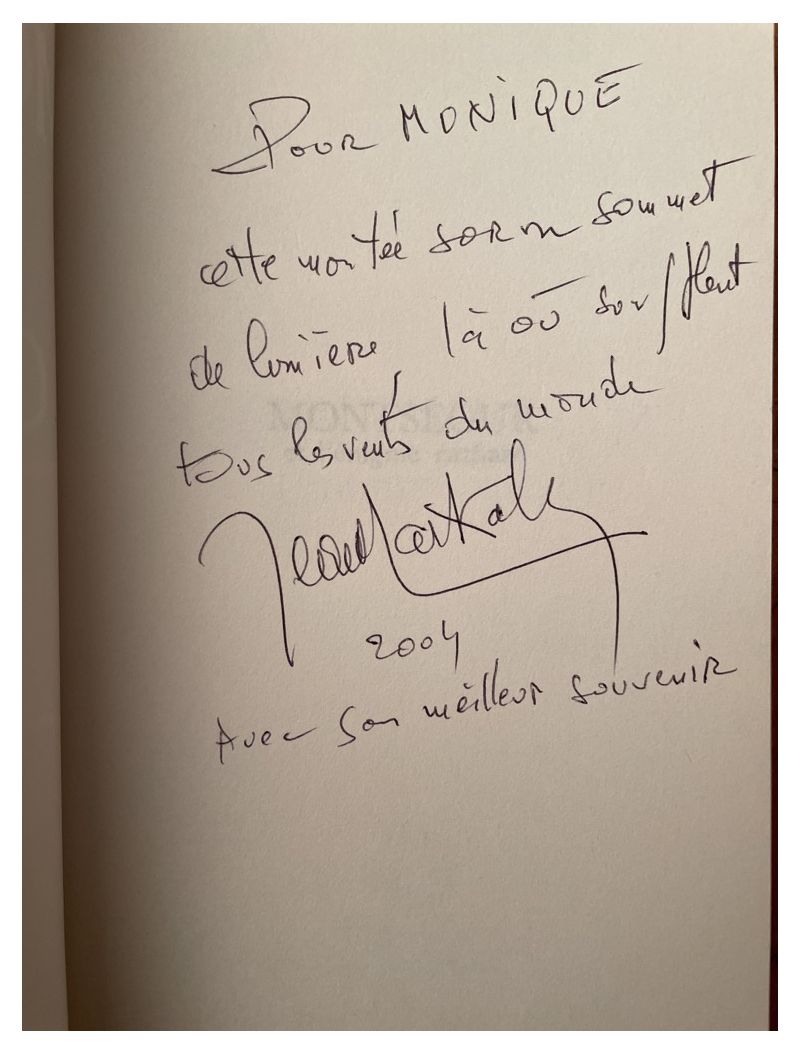 Pour MONIQUE
cette montée sur un sommet
de lumière là où soufflent
tous les vents du monde
Jean Markale
2004
Avec son meilleur souvenir
MONTSÉGUR